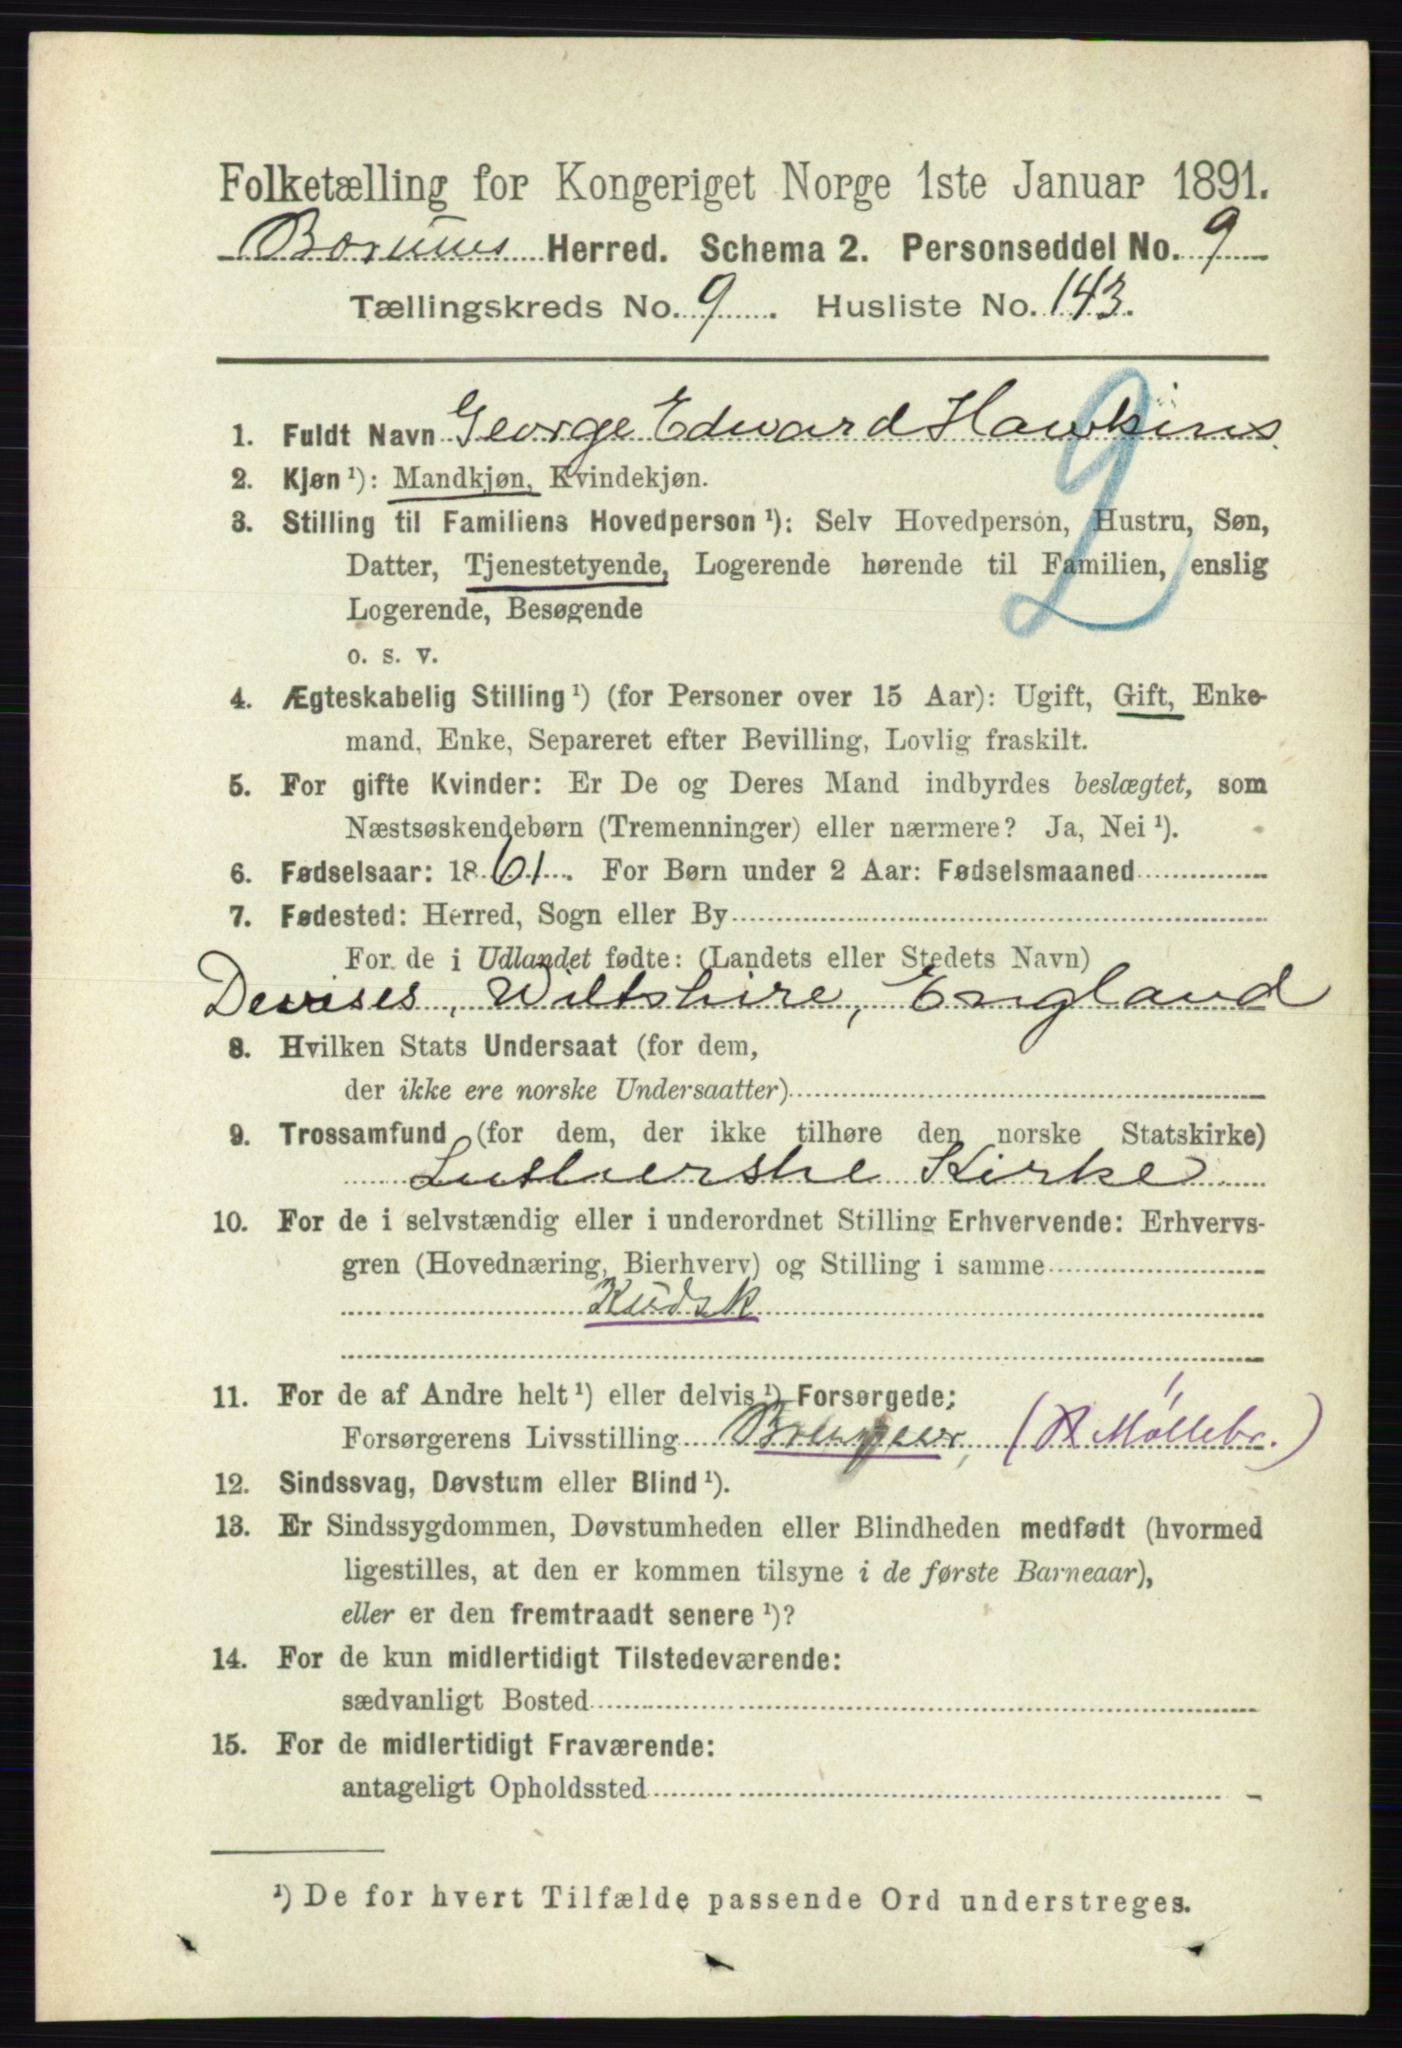 Folketælling for Kongeriget Norge 1ste Januar 1891.
Herred. Schema 2. Personseddel No. 9
Tællingskreds No. 9. Husliste No. 143.
1. Fuldt Navn George Edward Hawkins
2
2. Kjøn ¹): Mandkjøn, Kvindekjøn.
3. Stilling til Familiens Hovedperson ¹): Selv Hovedperson, Hustru, Søn,
Datter, Tjenestetyende, Logerende hørende til Familien, enslig
Logerende, Besøgende
o. s. v.
4. Ægteskabelig Stilling ¹) (for Personer over 15 Aar): Ugift, Gift, Enke-
mand, Enke, Separeret efter Bevilling, Lovlig fraskilt.
5. For gifte Kvinder: Er De og Deres Mand indbyrdes beslægtet, som
Næstsøskendebørn (Tremenninger) eller nærmere? Ja, Nei ¹).
6. Fødselsaar: 1861. For Børn under 2 Aar: Fødselsmaaned
7. Fødested: Herred, Sogn eller By
For de i Udlandet fødte: (Landets eller Stedets Navn)
Devises, Wiltshire, England
8. Hvilken Stats Undersaat (for dem,
der ikke ere norske Undersaatter)
9. Trossamfund (for dem, der ikke tilhøre den norske Statskirke)
Lutherske Kirke
10. For de i selvstændig eller i underordnet Stilling Erhvervende: Erhvervs-
gren (Hovednæring, Bierhverv) og Stilling i samme
Kudsk
11. For de af Andre helt ¹) eller delvis ¹) Forsørgede:
Forsørgerens Livsstilling (Møllebr.)
12. Sindssvag, Døvstum eller Blind ¹).
13. Er Sindssygdommen, Døvstumheden eller Blindheden medfødt (hvormed
ligestilles, at den er kommen tilsyne i de første Barneaar),
eller er den fremtraadt senere ¹)?
14. For de kun midlertidigt Tilstedeværende:
sædvanligt Bosted
15. For de midlertidigt Fraværende:
antageligt Opholdssted
¹) De for hvert Tilfælde passende Ord understreges.